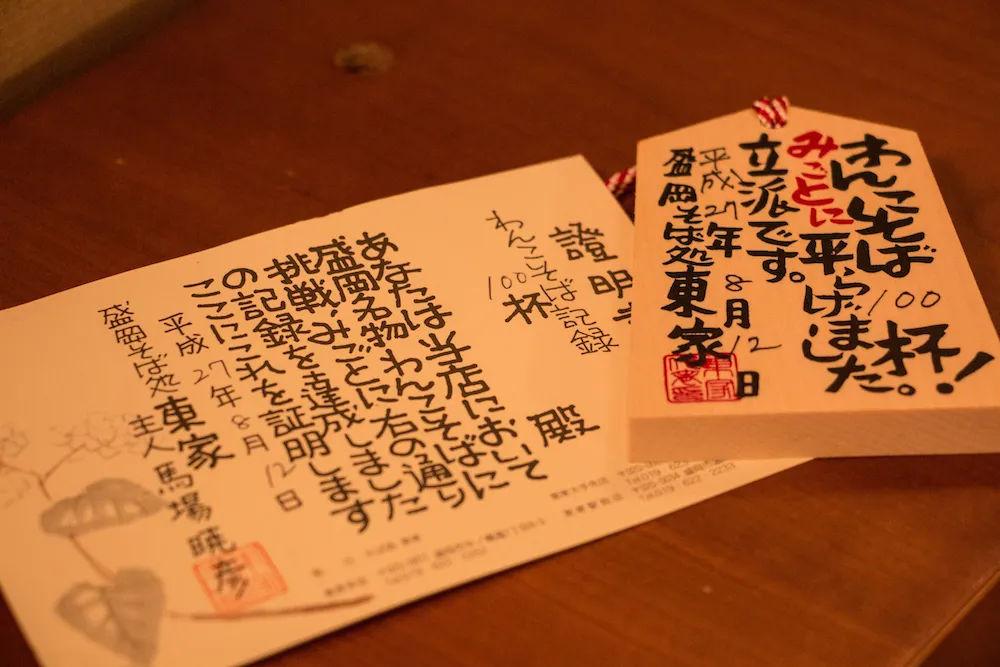 わんこそば100杯!
みごとに平らげました。
立派です。
平成27年8月12日
盛岡そば処 東家
證明
わんこそば記録
100杯
殿
あなたは当店において
盛岡名物わんこそばに
挑戦、みごとに右の通り
の記録を達成しました
ここにこれを証明します
平成27年8月12日
盛岡そば処 東家
主人 馬場暁彦